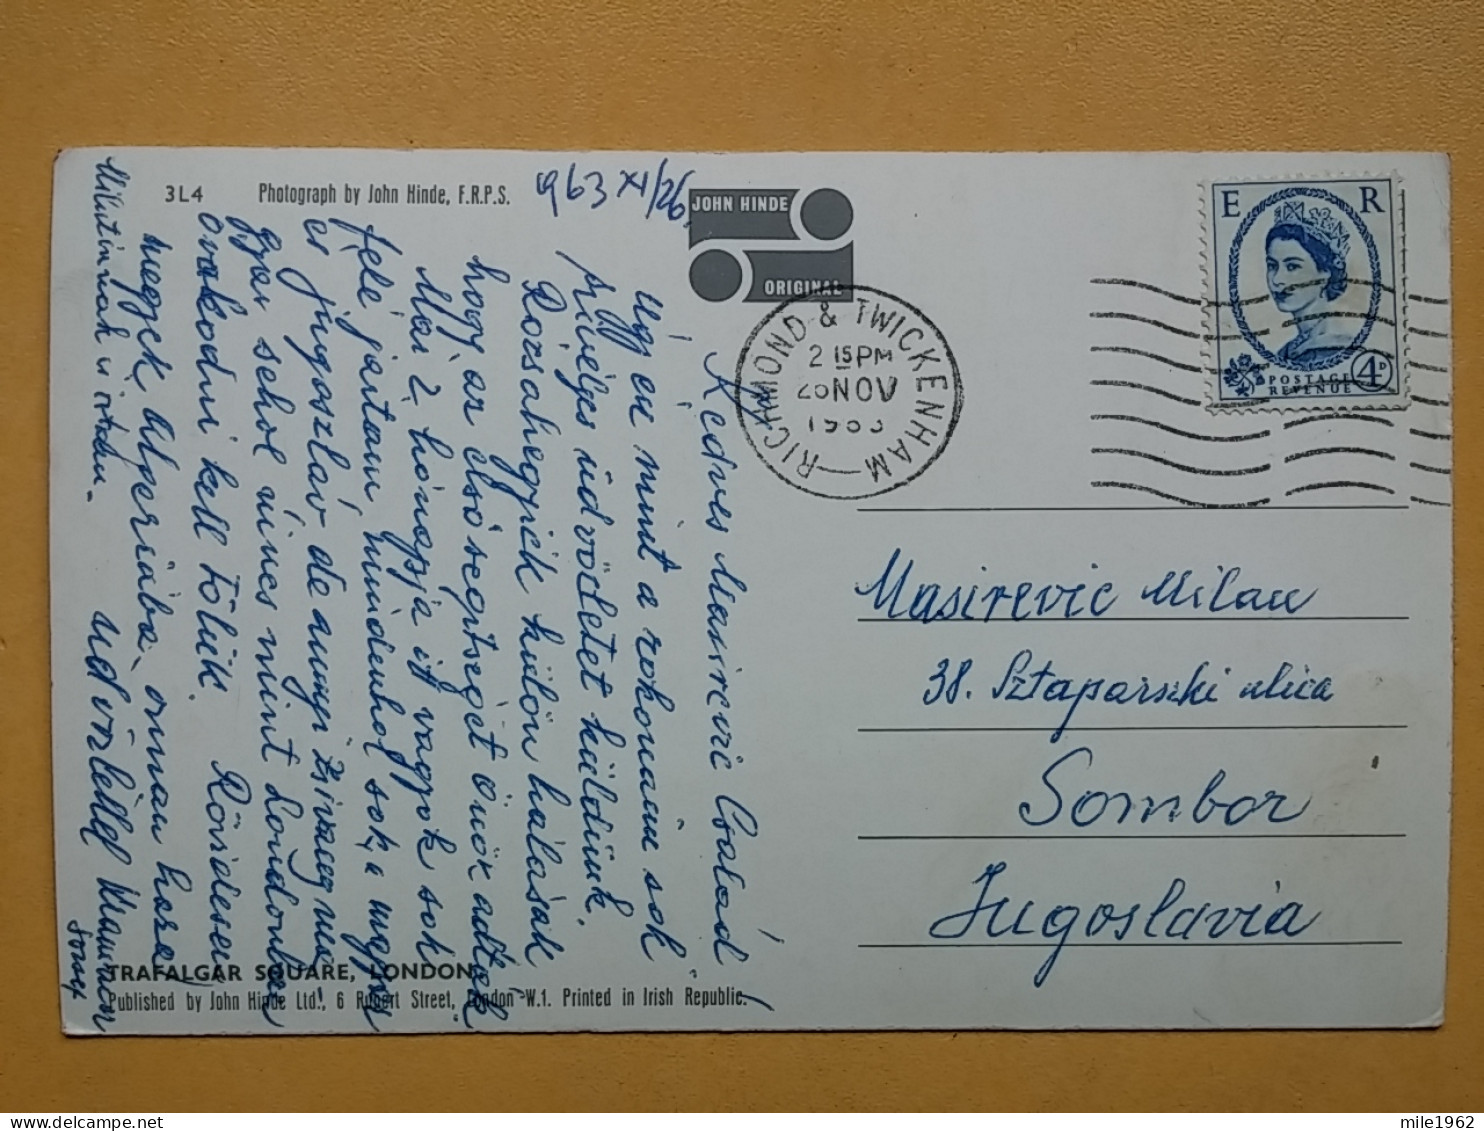 3L4 Photograph by John Hinde, F.R.P.S.
JOHN HINDE
ORIGINAL
963 XI/26.
Kedves Masirevic Család!
Úgy én mint a rokonaim sok
szívélyes üdvözletet küldünk.
Rózsahegyiék külön hálásak
hogy az első segítséget önök adták
Már 2 hónapja itt vagyok sok
felé jártam, mindenhol sok a magyar
és jugoszláv de annyi zsivány mint
sehol nincs mint Londonba
óvakodni kell tőlük. Rövidesen
megyek Algériába, onnan haza
Milutinnak is írtam. Üdvözlettel
József
RICHMOND & TWICKENHAM
2 15 PM
26 NOV
1963
E R
POSTAGE
REVENUE
4D
Masirevic Milan
38. Sztaparszki ulica
Sombor
Jugoslavia
TRAFALGAR SQUARE, LONDON.
Published by John Hinde Ltd., 6 Rupert Street, London W.1. Printed in Irish Republic.
mile1962